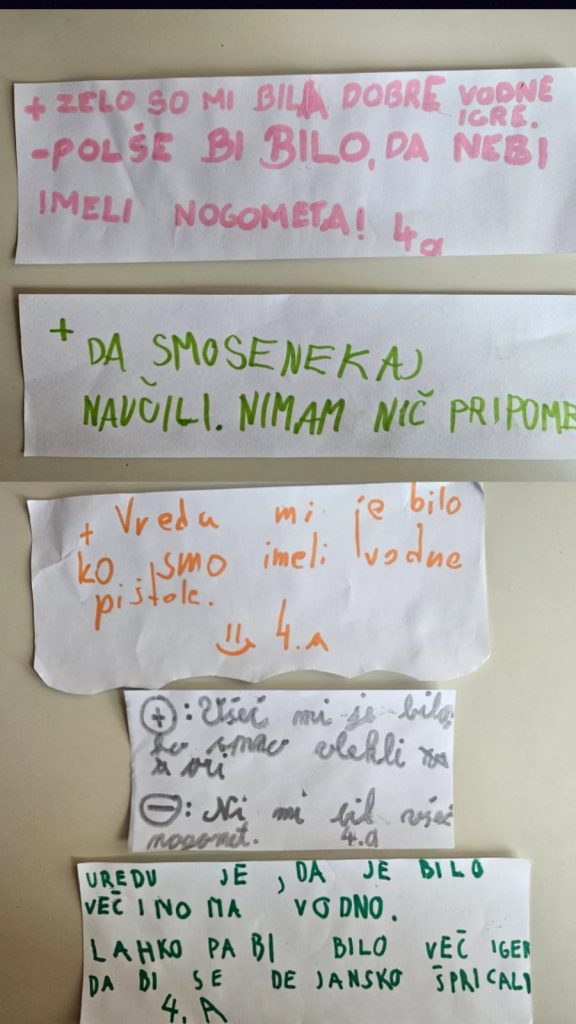 + ZELO SO MI BILA DOBRE VODNE
IGRE.
- POLŠE BI BILO, DA NEBI
IMELI NOGOMETA! 4a
+ DA SMOSENEKAJ
NAVČILI. NIMAM NIČ PRIPOMB
+ Vredu mi je bilo
ko smo imeli vodne
pištole.
4.A
+: Všeč mi je bilo,
ko smo vlekli
vrv
-: Ni mi bil všeč
nogomet. 4.a
UREDU JE, DA JE BILO
VEČINOMA VODNO.
LAHKO PA BI BILO VEČ IGER
DA BI SE DEJANSKO ŠPRICALI
4. A